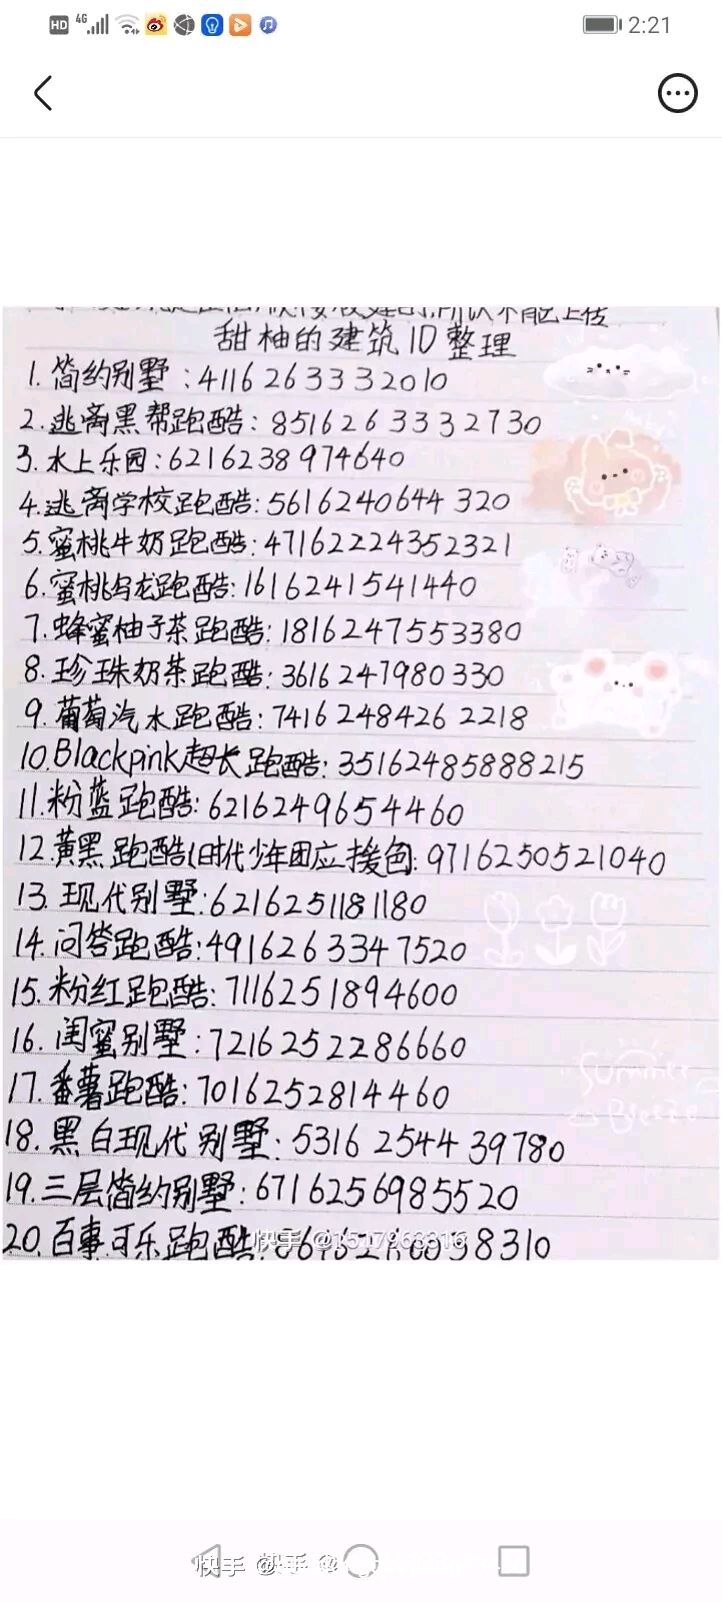 HD 4G 2:21
甜柚的建筑ID整理
1.简约别墅:4116263332010
2.逃离黑帮跑酷:8516263332730
3.水上乐园:6216238974640
4.逃离学校跑酷:5616240644320
5.蜜桃牛奶跑酷:47162224352321
6.蜜桃乌龙跑酷:1616241541440
7.蜂蜜柚子茶跑酷:1816247553380
8.珍珠奶茶跑酷:3616247980330
9.葡萄汽水跑酷:74162484262218
10.Blackpink超长跑酷:35162485888215
11.粉蓝跑酷:6216249654460
12.黄黑跑酷(时代少年团应援色:9716250521040
13.现代别墅:6216251181180
14.问答跑酷:4916263347520
15.粉红跑酷:7116251894600
16.闺蜜别墅:7216252286660
Summer
17.番薯跑酷:7016252814460
Breeze
18.黑白现代别墅:5316254439780
19.三层简约别墅:6716256985520
20.百事可乐跑酷:
快手 @1517963316
快手 @快手 @